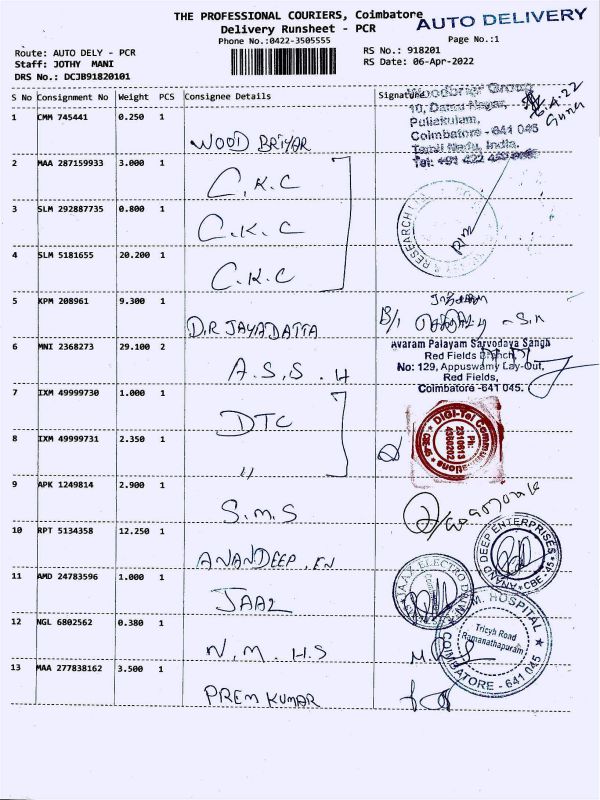 THE PROFESSIONAL COURIERS, Coimbatore
AUTO DELIVERY
Delivery Runsheet - PCR
Phone No.:0422-3505555
Page No.:1
Route: AUTO DELY - PCR
RS No.: 918201
Staff: JOTHY MANI
RS Date: 06-Apr-2022
DRS No.: DCJB91820101
S No Consignment No Weight PCS Consignee Details Signature
1 CMM 745441 0.250 1
WOOD BRIYAR
Woodbriar Group
10, Damu Nagar,
Puliakulam,
Coimbatore - 641 045
Tamil Nadu, India.
Tel: +91 422
6.4.22
Guna
2 MAA 287159933 3.000 1
C.K.C
3 SLM 292887735 0.800 1
C.K.C
RESEARCH
4 SLM 5181655 20.200 1
C.K.C
5 KPM 208961 9.300 1
D.R JAYADATTA
B/1
6 MNI 2368273 29.100 2
A.S.S. H
Avaram Palayam Sarvodaya Sangh
Red Fields Branch
No: 129, Appuswamy Lay-Out,
Red Fields,
Coimbatore -641 045.
7 IXM 49999730 1.000 1
DTC
8 IXM 49999731 2.350 1
"
DIGI-Tel Communications
Ph:
2310613
4380202
CBE-45
9 APK 1249814 2.900 1
S.M.S
10 RPT 5134358 12.250 1
ANANDEEP.EN
ANAND DEEP ENTERPRISES
CBE-45
11 AMD 24783596 1.000 1
JAAZ
JAAX ELECTRO
12 NGL 6802562 0.380 1
N.M.H.S
M. HOSPITAL
Trichy Road
Ramanathapuram
COIMBATORE - 641 045
13 MAA 277838162 3.500 1
PREM KUMAR